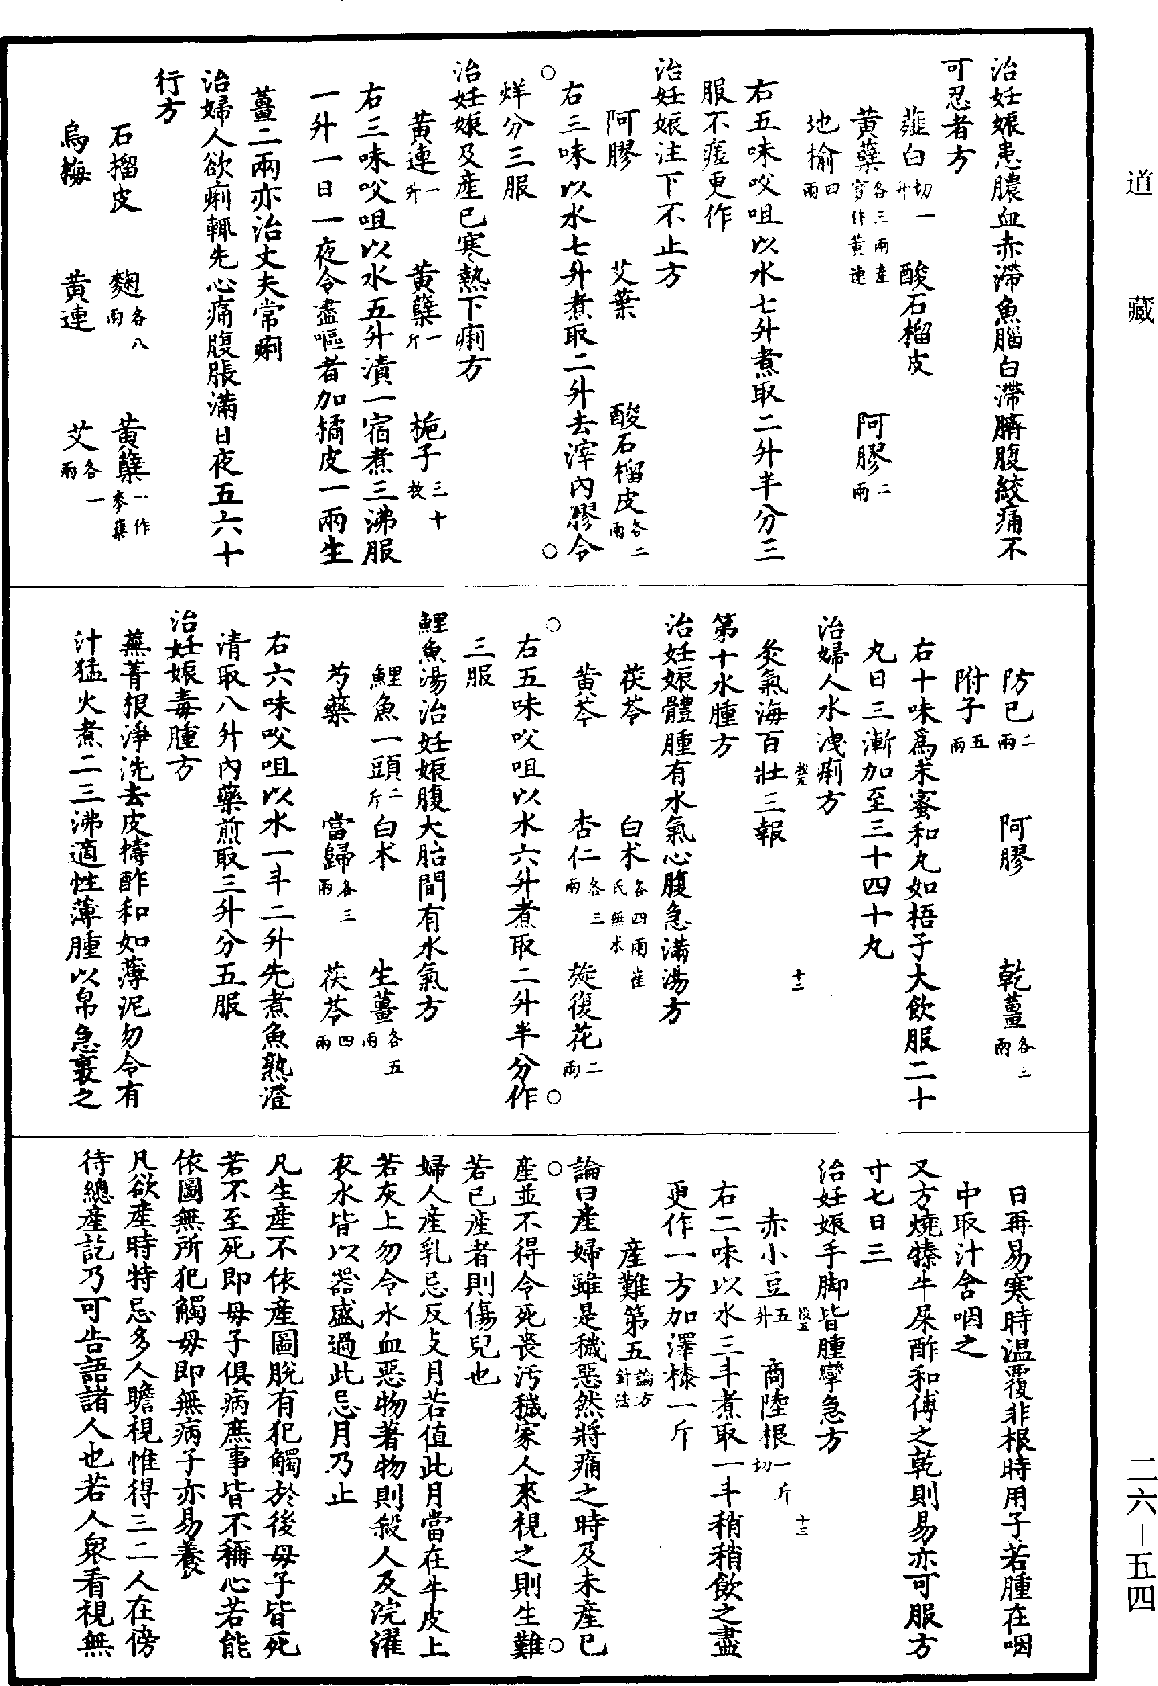 道藏
治妊娠患膿血赤滯魚腦白滯臍腹絞痛不
可忍者方
薤白切一升 酸石榴皮
黃蘗各三兩產寶作黃連 阿膠二兩
地榆四兩
右五味㕮咀以水七升煮取二升半分三
服不痊更作
治妊娠注下不止方
阿膠 艾葉 酸石榴皮各二兩
右三味以水七升煮取二升去滓內膠令
烊分三服
治妊娠及產已寒熱下痢方
黃連一升 黃蘗一斤 梔子三十枚
右三味㕮咀以水五升漬一宿煮三沸服
一升一日一夜令盡嘔者加橘皮一兩生
薑二兩亦治丈夫常痢
治婦人欲痢輒先心痛腹脹滿日夜五六十
行方
石榴皮 麴各八兩 黃蘗一作麥蘗
烏梅 黃連 艾各一兩
防已二兩 阿膠 乾薑各三兩
附子五兩
右十味為末蜜和丸如梧子大飲服二十
丸日三漸加至三十四十丸
治婦人水洩痢方
灸氣海百壯三報
第十水腫方
治妊娠體腫有水氣心腹急滿湯方
茯苓 白朮各四兩崔氏無朮
黃芩 杏仁各三兩 旋復花二兩
右五味㕮咀以水六升煮取二升半分作
三服
鯉魚湯治妊娠腹大胎間有水氣方
鯉魚一頭二斤 白朮 生薑各五兩
芍藥 當歸各三兩 茯苓四兩
右六味㕮咀以水一斗二升先煮魚熟澄
清取八升內藥煎取三升分五服
治妊娠毒腫方
蕪菁根淨洗去皮擣酢和如薄泥勿令有
汁猛火煮二三沸適性薄腫以帛急裹之
日再易寒時溫覆非根時用子若腫在咽
中取汁含咽之
又方燒犉牛屎酢和傅之乾則易亦可服方
寸七日三
治妊娠手脚皆腫攣急方
赤小豆五升 商陸根一斤切
右二味以水三斗煮取一斗稍稍飲之盡
更作一方加澤㯃一斤
產難第五論方針法
論曰產婦雖是穢惡然將痛之時及未產已
產並不得令死喪汚穢家人來視之則生難
若已產者則傷兒也
婦人產乳忌反支月若值此月當在牛皮上
若灰上勿令水血惡物著物則殺人及浣濯
衣水皆以器盛過此忌月乃止
凡生產不依產圖脫有犯觸於後母子皆死
若不至死即母子俱病庶事皆不稱心若能
依圖無所犯觸母即無病子亦易養
凡欲產時特忌多人瞻視惟得三二人在傍
待總產訖乃可告語諸人也若人衆看視無
二六—五四